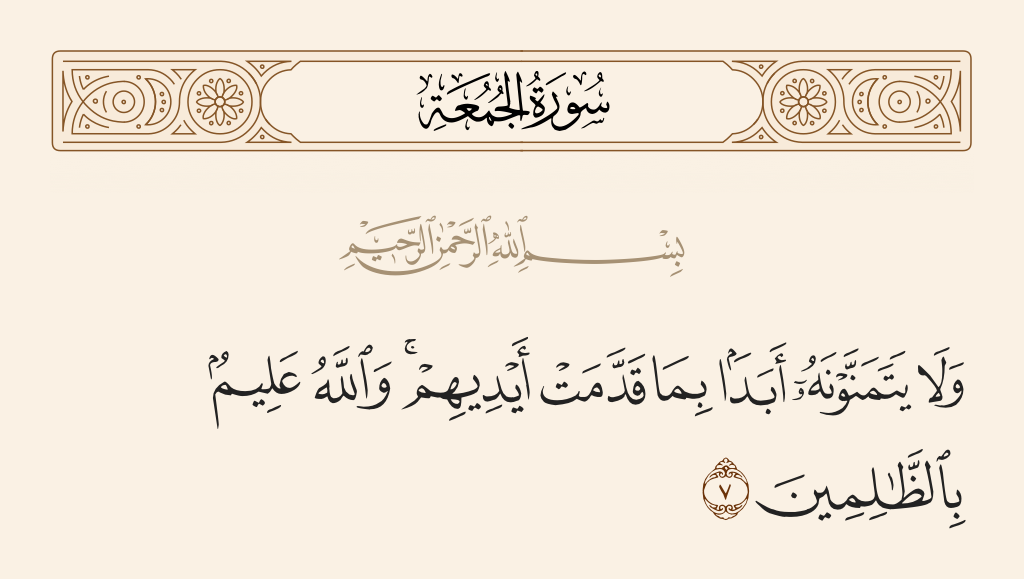 سُورَةُ الجُمُعَةِ
بِسْمِ ٱللَّهِ ٱلرَّحْمَٰنِ ٱلرَّحِيمِ
وَلَا يَتَمَنَّوْنَهُۥٓ أَبَدًۢا بِمَا قَدَّمَتْ أَيْدِيهِمْ ۚ وَٱللَّهُ عَلِيمٌۢ
بِٱلظَّٰلِمِينَ ٧